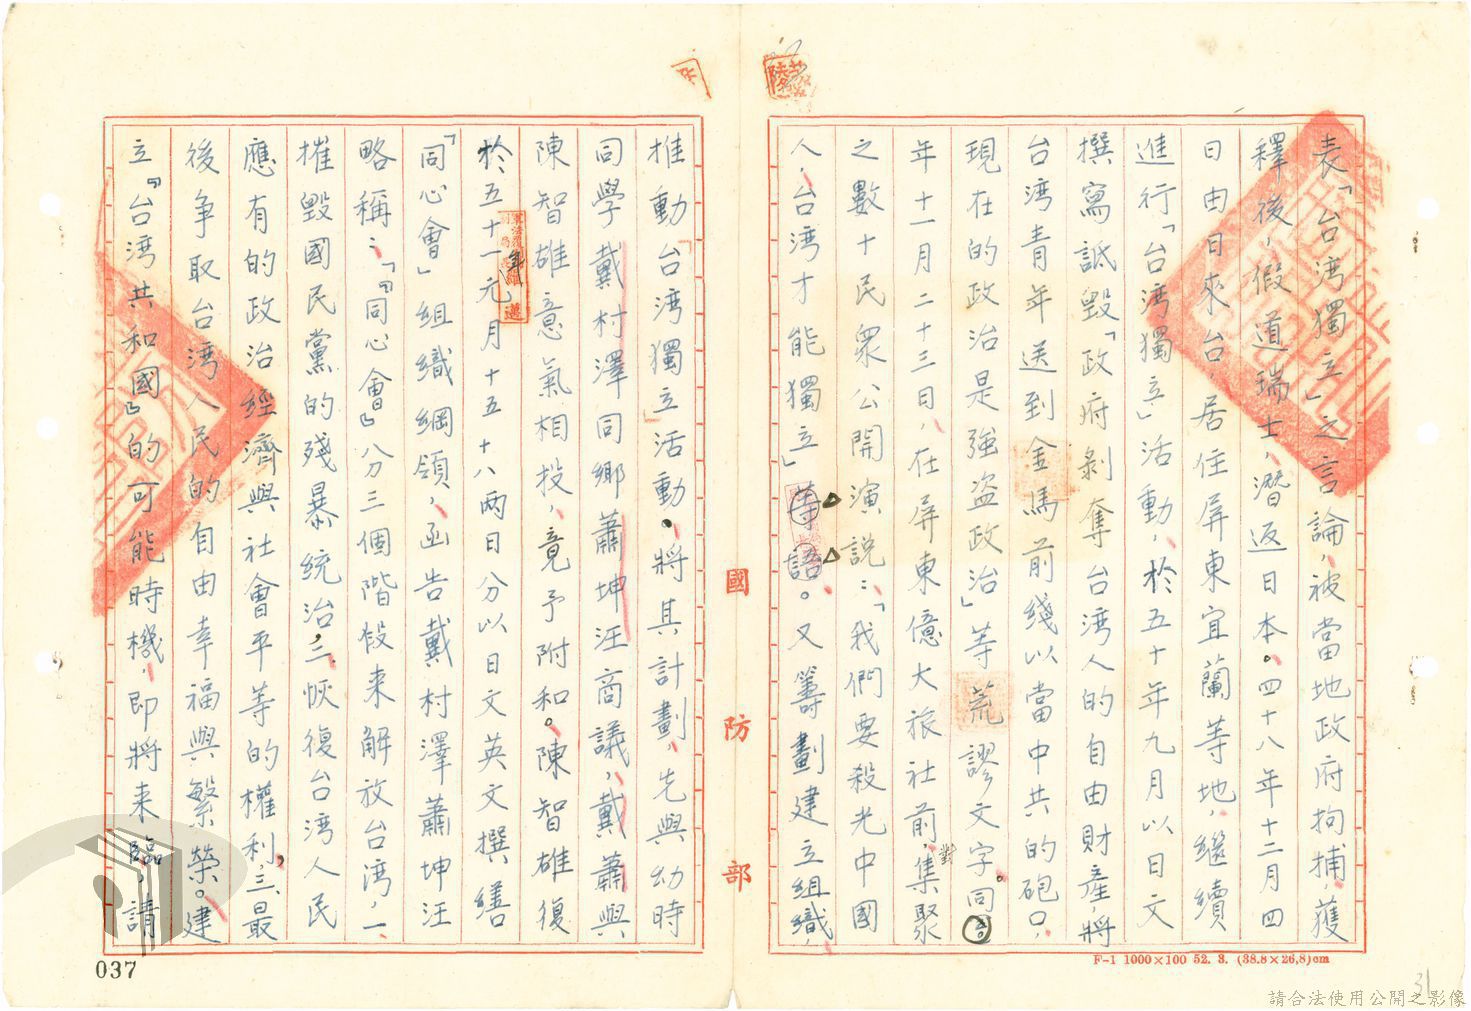 表「台湾獨立」之言論，被當地政府拘捕，獲
釋後，假道瑞士，潛返日本。四十八年十二月四
日由日來台，居住屏東宜蘭等地，繼續
進行「台湾獨立」活動，於五十年九月以日文
撰寫詆毀「政府剝奪台湾人的自由財產，將
台湾青年送到金馬前綫以當中共的砲口，
現在的政治是強盗政治」等荒謬文字。同
年十一月二十三日，在屏東億大旅社前，對集聚
之數十民眾公開演説：「我們要殺光中國
人，台湾才能獨立」等語。又籌劃建立組織，
推動「台湾獨立」活動。將其計劃，先與幼時
同學戴村澤同鄉蕭坤汪商議，戴蕭與
陳智雄意氣相投，竟予附和。陳智雄復
於五十一年元月十五十八兩日分以日文英文撰繕
「同心會」組織綱領，函告戴村澤蕭坤汪
略稱：「『同心會』分三個階段来解放台湾，一、
摧毀國民黨的殘暴統治，二、恢復台湾人民
應有的政治經濟與社會平等的權利，三、最
後争取台湾人民的自由幸福與繁榮。建
立『台湾共和國』的可能時機，即將来臨，請
國防部
F-1 1000×100 52. 3. (38.8×26,8)cm
037
31
請合法使用公開之影像